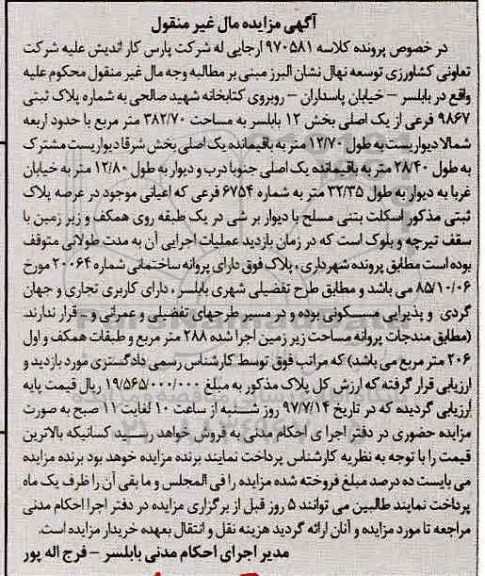 آگهی مزایده مال غیر منقول
در خصوص پرونده کلاسه ۹۷۰۵۸۱ ارجایی له شرکت پارس کار اندیش علیه شرکت
تعاونی کشاورزی توسعه نهال نشان البرز مبنی بر مطالبه وجه مال غیر منقول محکوم علیه
واقع در بابلسر – خیابان پاسداران – روبروی کتابخانه شهید صالحی به شماره پلاک ثبتی
۹۸۶۷ فرعی از یک اصلی بخش ۱۲ بابلسر به مساحت ۳۸۲/۷۰ متر مربع با حدود اربعه
شمالا دیواریست به طول ۱۲/۷۰ متر به باقیمانده یک اصلی بخش شرقا دیواریست مشترک
به طول ۲۸/۴۰ متر به باقیمانده یک اصلی جنوبا درب و دیوار به طول ۱۲/۸۰ متر به خیابان
غربا به دیوار به طول ۳۲/۳۵ متر به شماره ۶۷۵۴ فرعی که اعیانی موجود در عرصه پلاک
ثبتی مذکور اسکلت بتنی مسلح با دیوار برشی در یک طبقه روی همکف و زیر زمین با
سقف تیرچه و بلوک است که در زمان بازدید عملیات اجرایی آن به مدت طولانی متوقف
بوده است مطابق پرونده شهرداری، پلاک فوق دارای پروانه ساختمانی شماره ۲۰۰۶۴ مورخ
۸۵/۱۰/۰۶ می باشد و مطابق طرح تفضیلی شهری بابلسر، دارای کاربری تجاری و جهان
گردی و پذیرایی مسکونی بوده و در مسیر طرحهای تفضیلی و عمرانی و .. قرار ندارند.
(مطابق مندجات پروانه مساحت زیر زمین اجرا شده ۲۸۸ متر مربع و طبقات همکف و اول
۲۰۶ متر مربع می باشد) که مراتب فوق توسط کارشناس رسمی دادگستری مورد بازدید و
ارزیابی قرار گرفته که ارزش کل پلاک مذکور به مبلغ ۱۹/۵۶۵/۰۰۰/۰۰۰ ریال قیمت پایه
ارزیابی گردیده که در تاریخ ۹۷/۷/۱۴ روز شنبه از ساعت ۱۰ لغایت ۱۱ صبح به صورت
مزایده حضوری در دفتر اجرا ی احکام مدنی به فروش خواهد رسید کسانیکه بالاترین
قیمت را با توجه به نظریه کارشناس پرداخت نمایند برنده مزایده خواهد بود برنده مزایده
می بایست ده درصد مبلغ فروخته شده مزایده را فی المجلس و مابقی آن را ظرف یک ماه
پرداخت نمایند طالبین می توانند ۵ روز قبل از برگزاری مزایده در دفتر اجرا احکام مدنی
مراجعه تا مورد مزایده و آنان ارائه گردید هزینه نقل و انتقال بعهده خریدار مزایده است.
مدیر اجرای احکام مدنی بابلسر – فرج اله پور